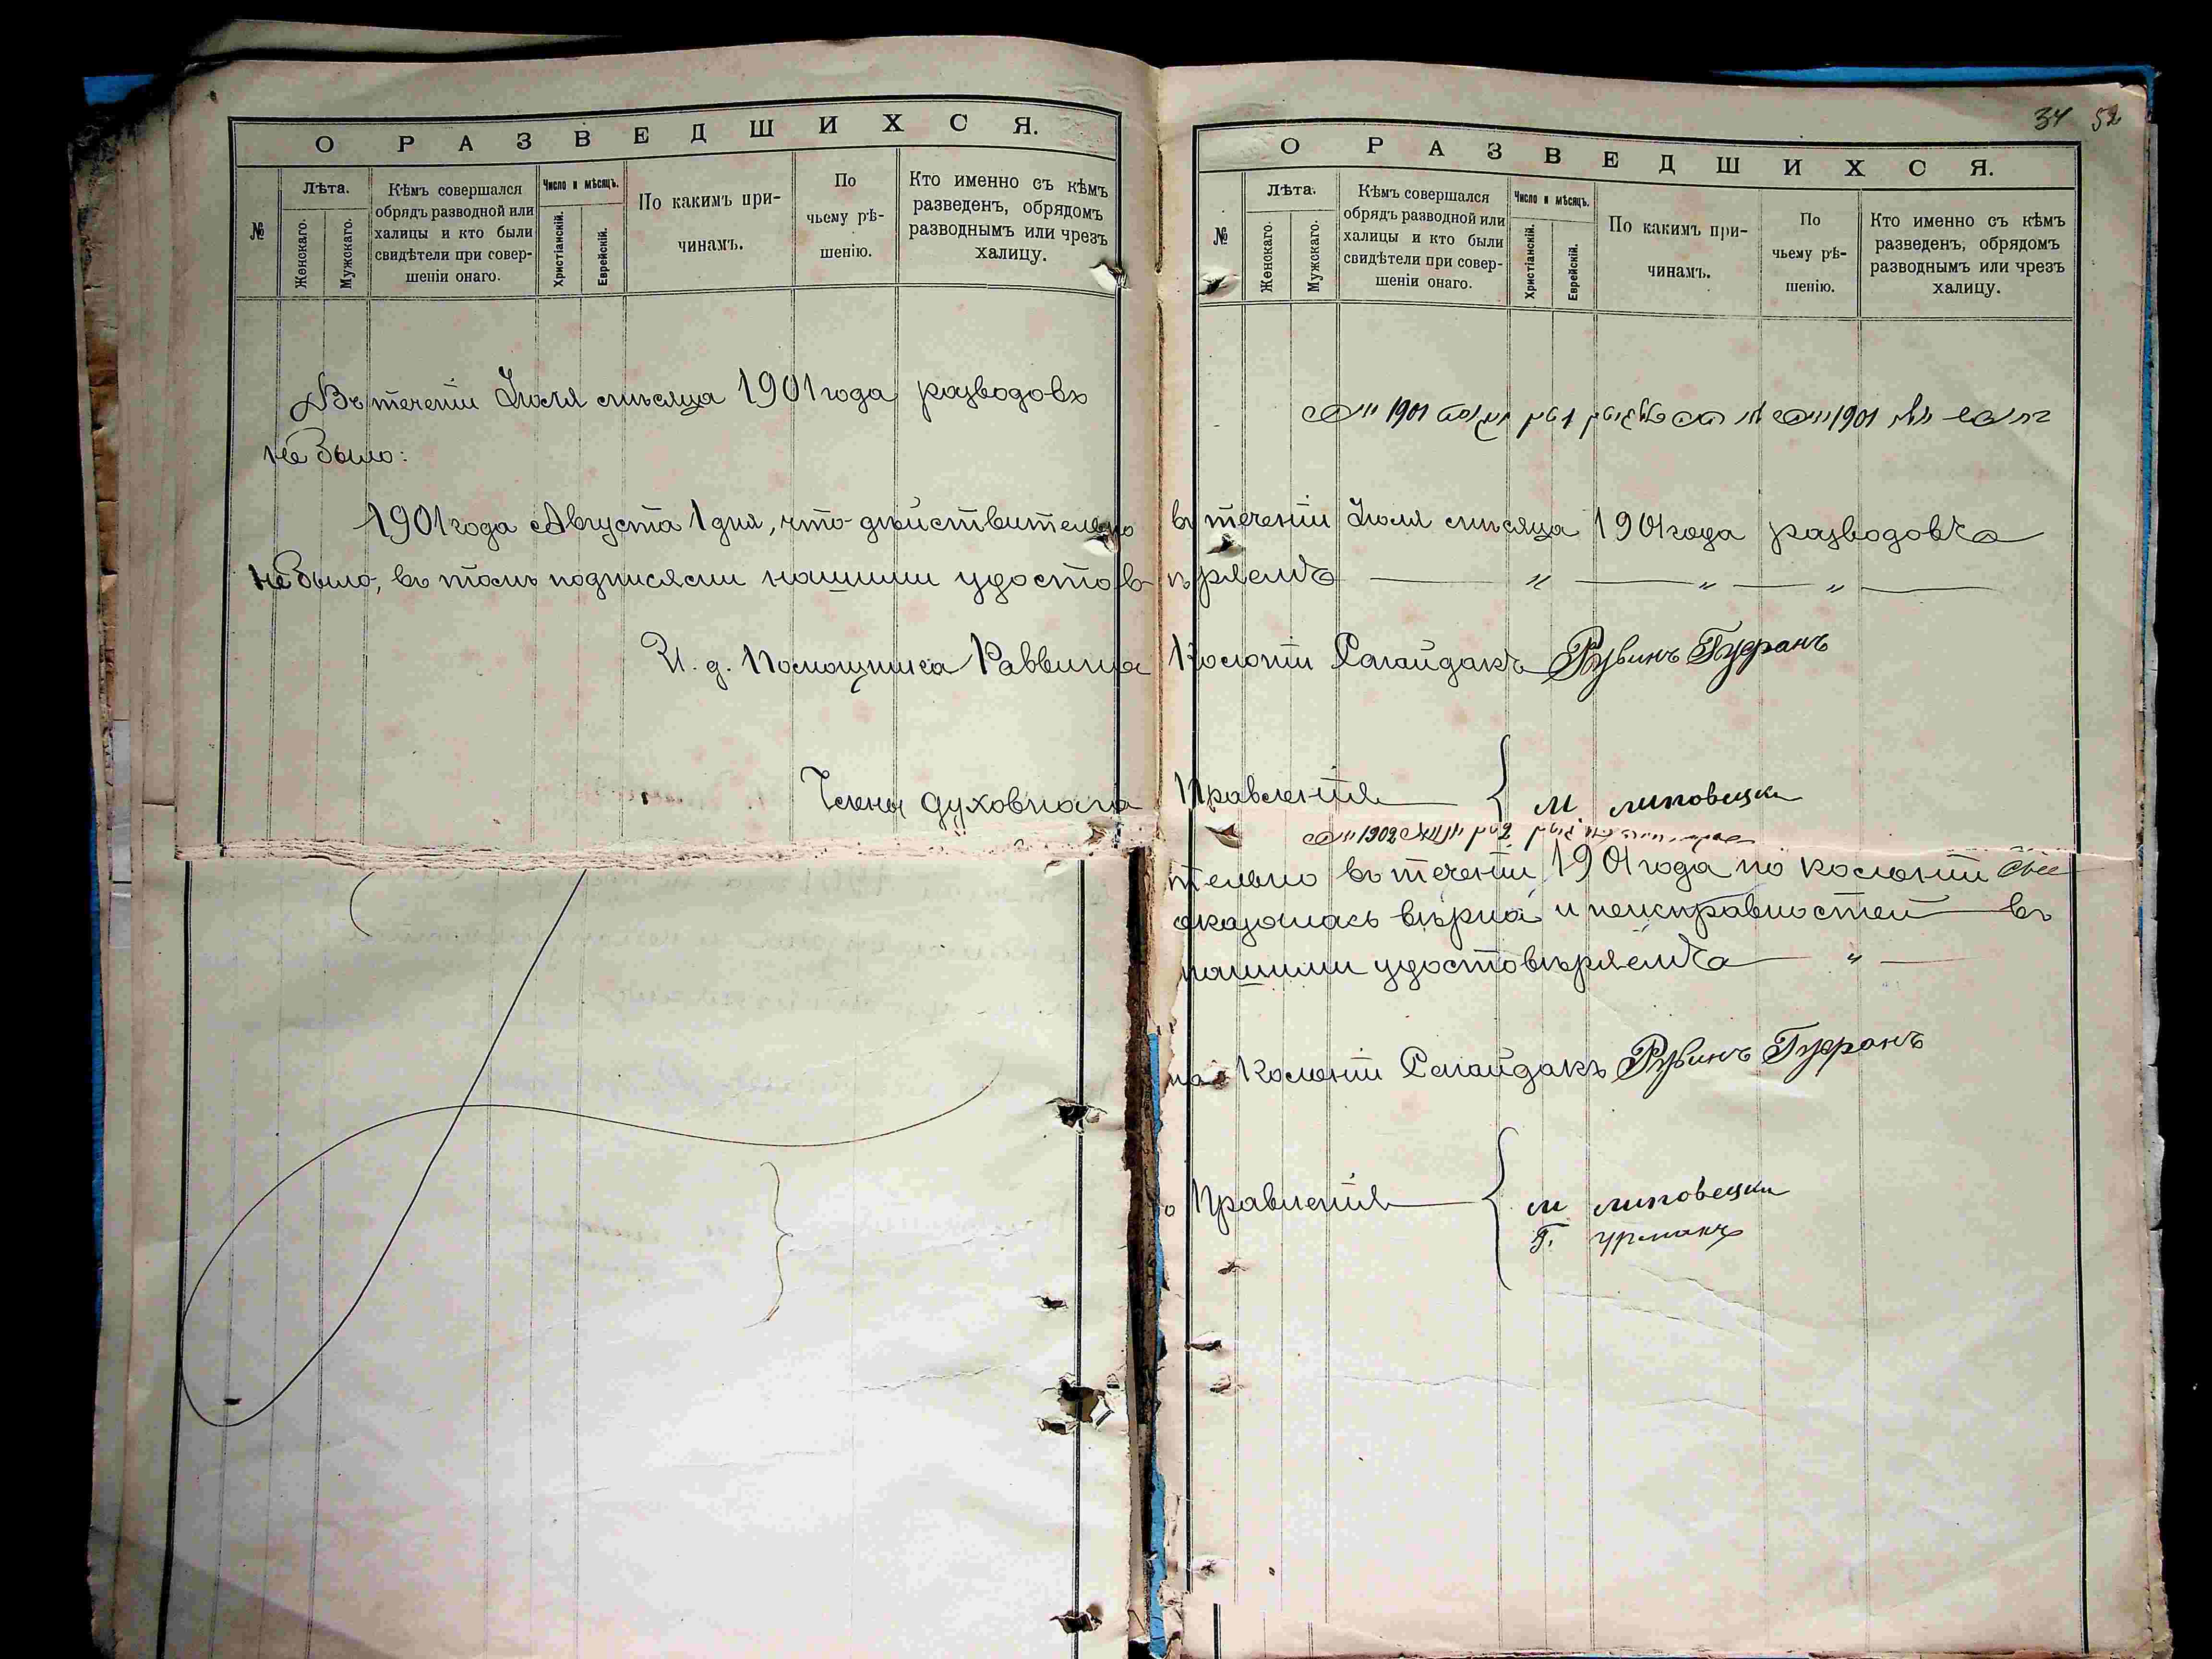 34 52
О РАЗВЕДШИХСЯ.
№
Лѣта.
Женскаго.
Мужскаго.
Кѣмъ совершался
обрядъ разводной или
халицы и кто были
свидѣтели при совер-
шеніи онаго.
Число и мѣсяцъ.
Христіанскій.
Еврейскій.
По какимъ при-
чинамъ.
По
чьему рѣ-
шенію.
Кто именно съ кѣмъ
разведенъ, обрядомъ
разводнымъ или чрезъ
халицу.
Въ теченіи Іюля мѣсяца 1901 года разводовъ
не было:
1901 года Августа 1 дня, что дѣйствительно
не было, въ томъ подписями нашими удостов
И. д. Помощника Раввина
Члены духовнаго
О РАЗВЕДШИХСЯ.
№
Лѣта.
Женскаго.
Мужскаго.
Кѣмъ совершался
обрядъ разводной или
халицы и кто были
свидѣтели при совер-
шеніи онаго.
Число и мѣсяцъ.
Христіанскій.
Еврейскій.
По какимъ при-
чинамъ.
По
чьему рѣ-
шенію.
Кто именно съ кѣмъ
разведенъ, обрядомъ
разводнымъ или чрезъ
халицу.
1901 1901
въ теченіи Іюля мѣсяца 1901 года разводовъ
ѣряемъ
Колоніи Сагайдакъ Рувинъ
Правленія М. Липовецки
1902
тельно въ теченіи 1901 года по колоніи
оказалась вѣрна и неисправностей въ
нашими удостовѣряемъ
на Колоніи Сагайдакъ Рувинъ
о Правленія М Липовецки
Г. Урманъ